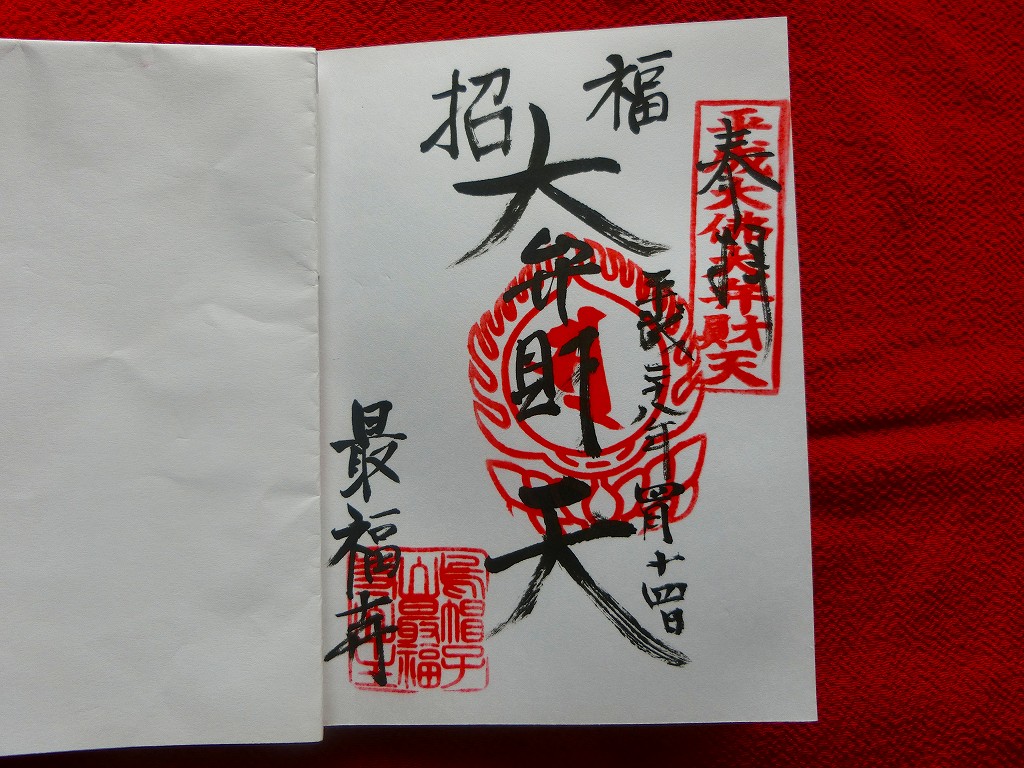 奉拝
平成大佛大弁財天
福
平成二十八年四月十四日
招
大弁財天
最福寺
烏帽子
山最福